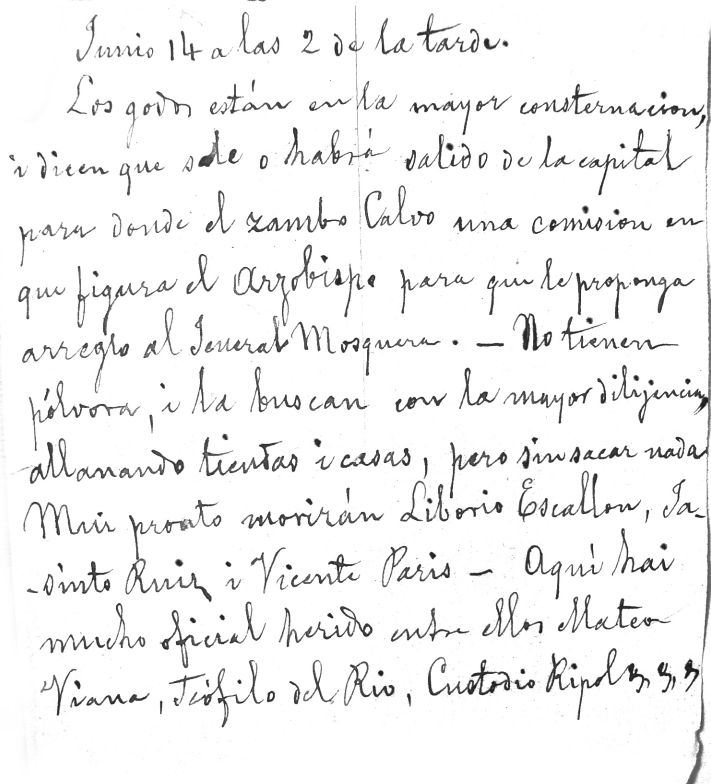 Junio 14 a las 2 de la tarde.
Los godos están en la mayor consternacion,
i dicen que sale o habrá salido de la capital
para donde el zambo Calvo una comision en
que figura el Arzobispo para que le proponga
arreglo al Jeneral Mosquera. — No tienen
pólvora, i la buscan con la mayor dilijencia,
allanando tiendas i casas, pero sin sacar nada
Mui pronto morirán Liborio Escallon, Ja-
-sinto Ruiz i Vicente Paris — Aquí hai
mucho oficial herido entre ellos Mateo
Viana, Teófilo del Rio, Custodio Ripol